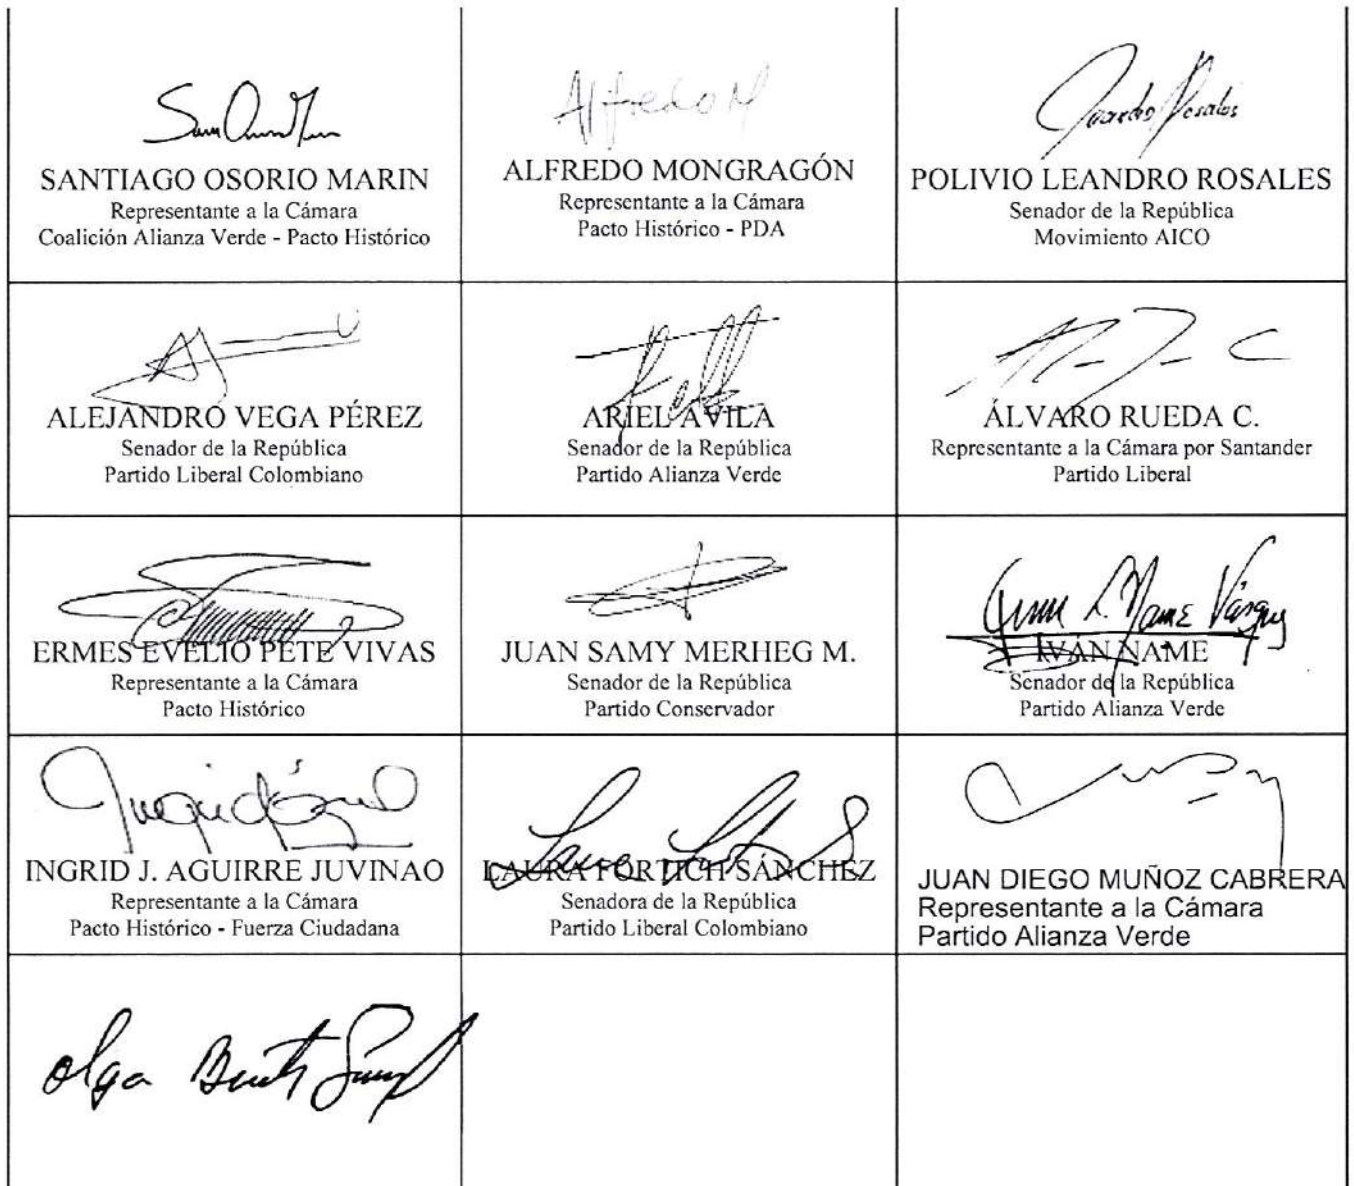 Alfredo M
SANTIAGO OSORIO MARIN
Representante a la Cámara
Coalición Alianza Verde - Pacto Histórico
ALFREDO MONGRAGÓN
Representante a la Cámara
Pacto Histórico - PDA
Leandro Rosales
POLIVIO LEANDRO ROSALES
Senador de la República
Movimiento AICO
ALEJANDRO VEGA PÉREZ
Senador de la República
Partido Liberal Colombiano
ARIEL AVILA
Senador de la República
Partido Alianza Verde
ÁLVARO RUEDA C.
Representante a la Cámara por Santander
Partido Liberal
ERMES EVELIO PETE VIVAS
Representante a la Cámara
Pacto Histórico
JUAN SAMY MERHEG M.
Senador de la República
Partido Conservador
Name Vásquez
IVÁN NAME
Senador de la República
Partido Alianza Verde
INGRID J. AGUIRRE JUVINAO
Representante a la Cámara
Pacto Histórico - Fuerza Ciudadana
LAURA FORTICH SÁNCHEZ
Senadora de la República
Partido Liberal Colombiano
JUAN DIEGO MUÑOZ CABRERA
Representante a la Cámara
Partido Alianza Verde
Olga